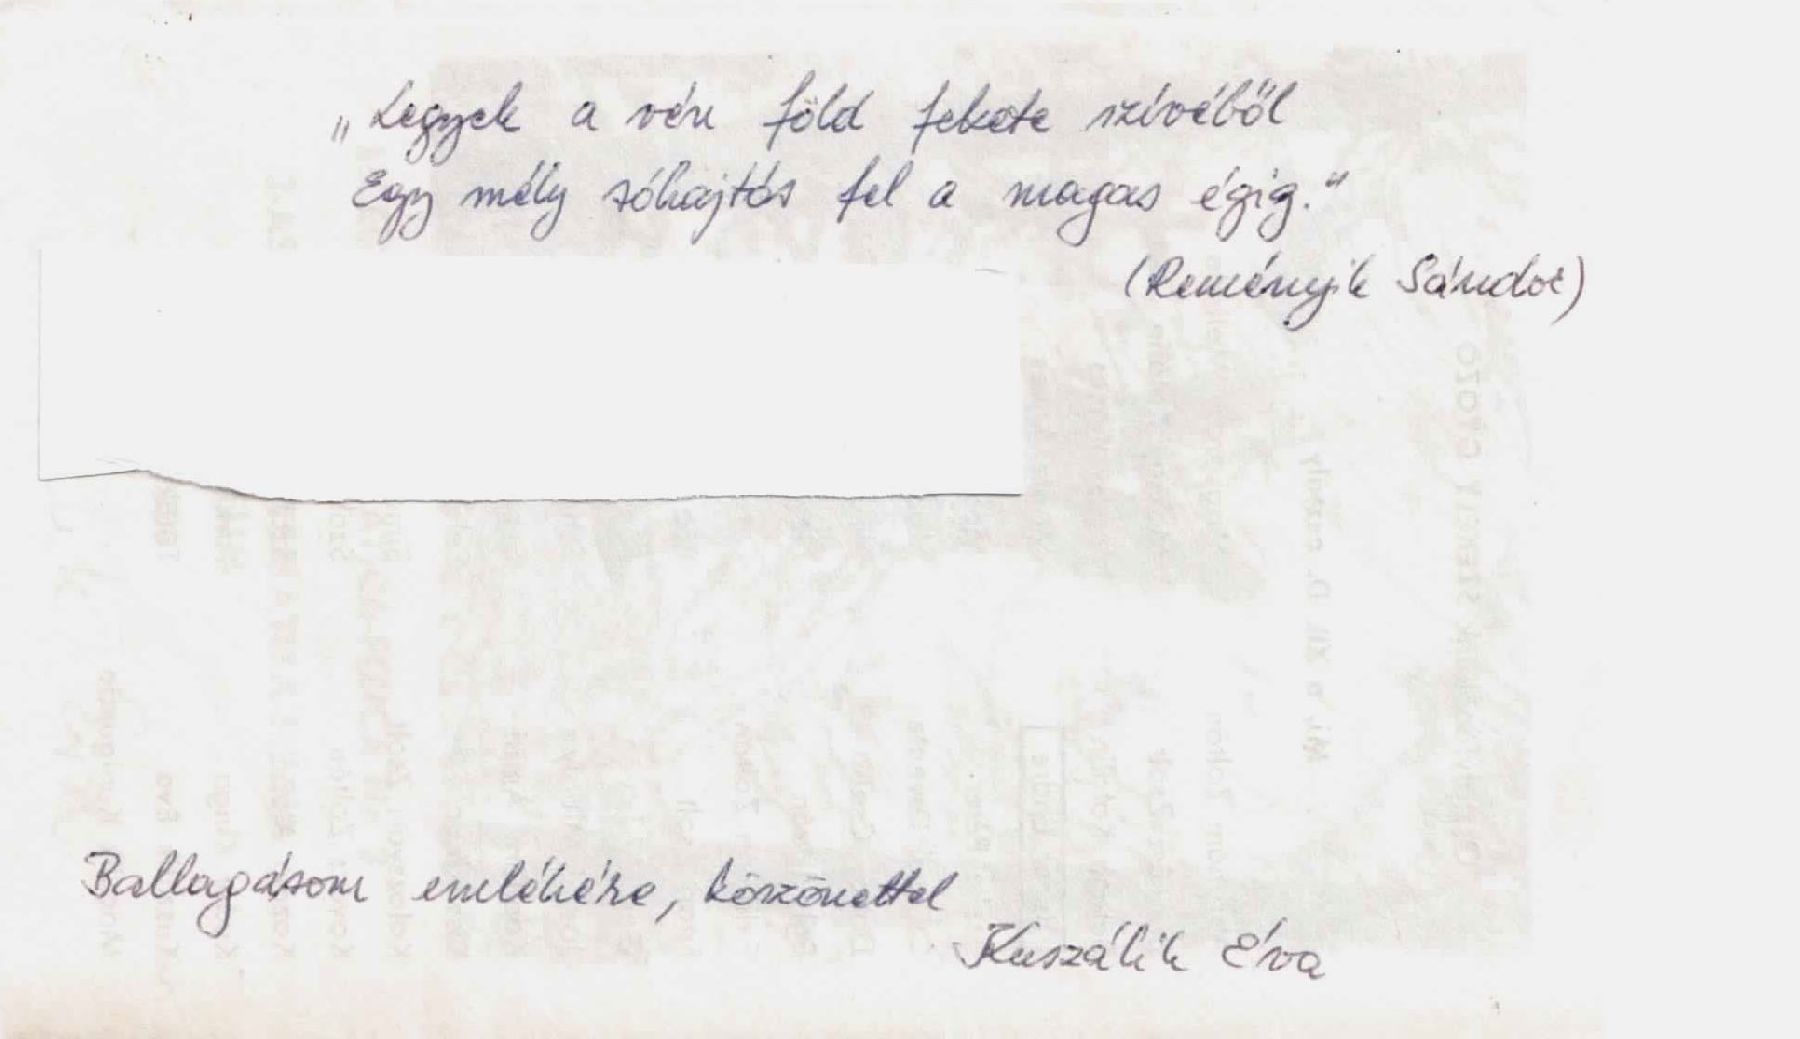 „Legyek a vén föld fekete szívéből
Egy mély sóhajtás fel a magas égig.“
(Reményik Sándor)
Ballagásom emlékére, köszönettel
Kuszálik Éva